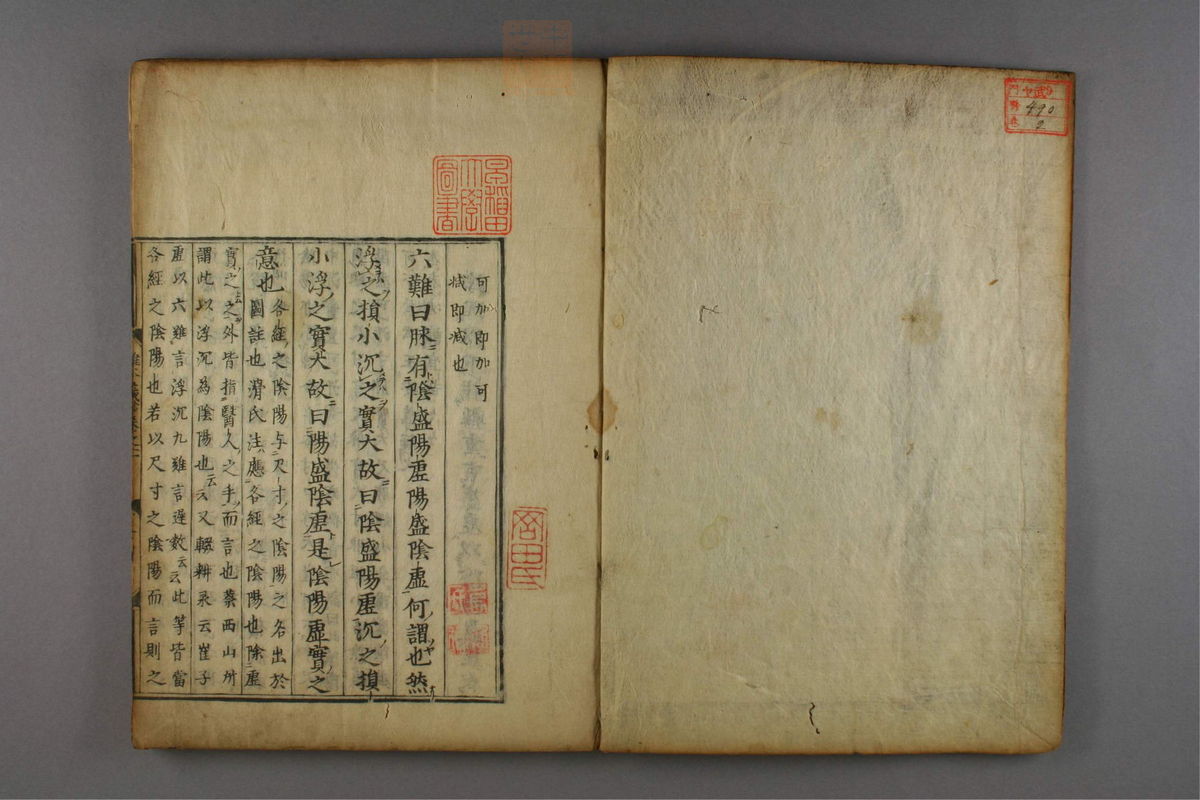 490
2
早稲田
大學
圖書
可加即加可
减即减也
六難曰脉有陰盛陽虚陽盛陰虚何謂也然
浮之損小沉之實大故曰陰盛陽虚沉之損
小浮之實大故曰陽盛陰虚是陰陽虚實之
意也
各經之陰陽与尺寸之陰陽之名出於
圖註也滑氏法應各經之陰陽也除虚
實之云之外皆指醫人之手而言也蔡西山所
謂此以浮沉為陰陽也云云又輟耕录云崔子
虚以六難言浮沉九難言遅数云云此等皆當
各經之陰陽也若以尺寸之陰陽而言則之